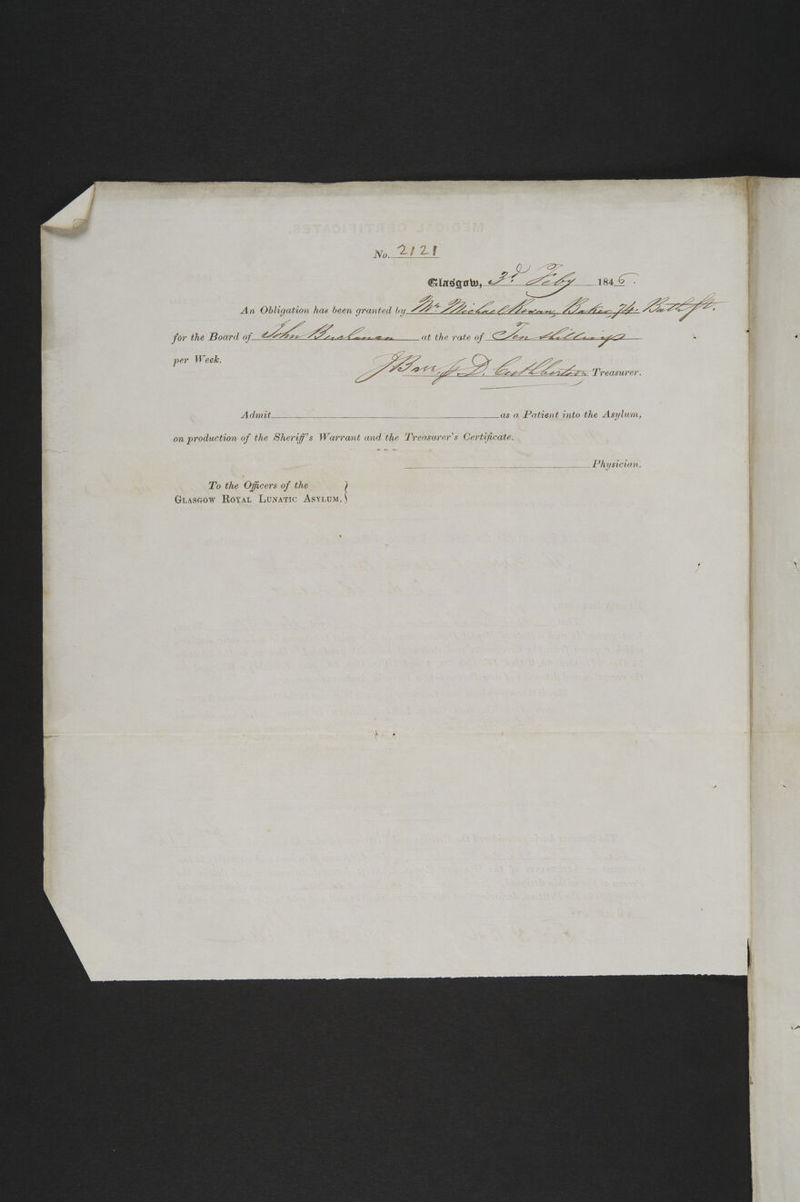 No. 2121
Glasgow, 3d Feby 1846.
An Obligation has been granted by Mr Michael Rowan, Baker 74 Bath St.
for the Board of John Buchanan at the rate of Ten Shillings
per Week.
D. Cuthbertson Treasurer.
Admit as a Patient into the Asylum,
on production of the Sheriff's Warrant and the Treasurer's Certificate.
Physician.
To the Officers of the
GLASGOW ROYAL LUNATIC ASYLUM.